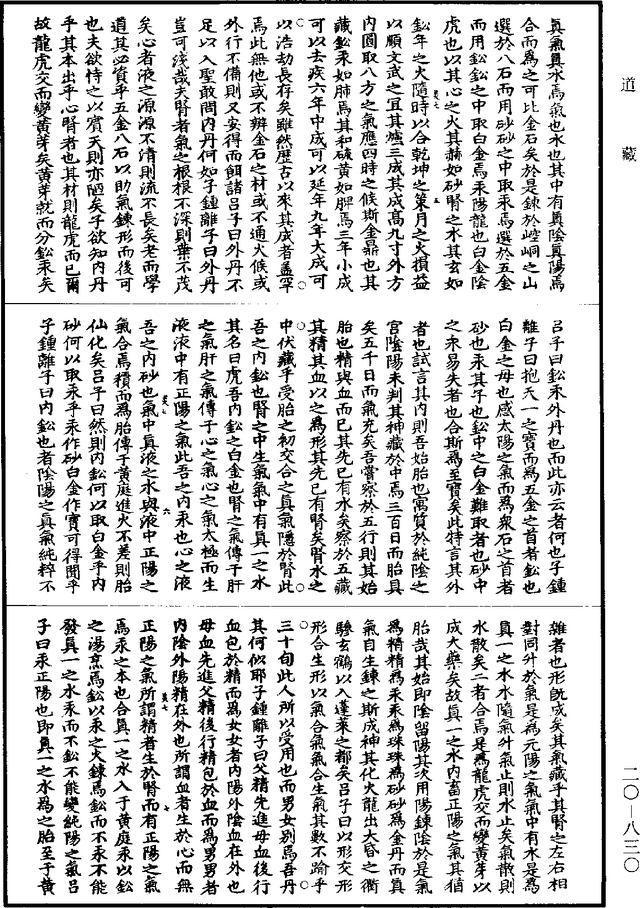 道藏
眞氣眞水焉氣也水也其中有眞陰眞陽焉
合而爲之可比金石矣於是鍊於崆峒之山
選於八石而用砂砂之中取汞焉選於五金
而用鈆鈆之中取白金焉汞陽龍也白金陰
虎也以其心之火其赫如砂腎之水其玄如
鈆年之火隨時以合乾坤之策月之火損益
以順文武之宜其爐三成其成高九寸外方
内圓取八方之氣應四時之候斯金鼎也其
藏鈆汞如肺焉其和硫黄如脾焉三年小成
可以去疾六年中成可以延年九年大成可
以浩劫長存矣雖然歷古以來其成者蓋罕
焉此無他或不辨金石之材或不通火候或
外行不備則又安得而餌諸吕子曰外丹不
足以入聖敢問内丹何如子鍾離子曰外丹
豈可淺哉夫腎者氣之根根不深則葉不茂
矣心者液之源源不清則流不長矣老而學
道其必質乎五金八石以助氣鍊形而後可
也夫欲恃之以賓天則亦陋矣子欲知内丹
乎其本出乎心腎者也其材則龍虎而已爾
故龍虎交而變黄芽矣黄芽就而分鈆汞矣
吕子曰鈆汞外丹也而此亦云者何也子鍾
離子曰抱天一之寶而爲五金之首者鈆也
白金之母也感太陽之氣而爲衆石之首者
砂也汞其子也鈆中之白金難取者也砂中
之汞易失者也合斯爲至寶矣此特言其外
者也試言其内則吾始胎也寓質於純陰之
宫陰陽未判其神藏於中焉三百日而胎具
矣五千日而氣充矣吾嘗察於五行則其始
胎也精與血而已其先已有水矣察於五藏
其精其血以之爲形其先已有腎矣腎水之
中伏藏乎受胎之初交合之眞氣隱於腎此
吾之内鈆也腎之中生氣氣中有眞一之水
其名曰虎吾内鈆之白金也腎之氣傳于肝
之氣肝之氣傳于心之氣心之氣太極而生
液液中有正陽之氣此吾之内汞也心之液
吾之内砂也氣中眞液之水與液中正陽之
氣合焉積而爲胎傳于黄庭進火不差則胎
仙化矣吕子曰然則内鈆何以取白金乎内
砂何以取汞乎汞作砂白金作寶可得聞乎
子鍾離子曰内鈆也者陰陽之眞氣純粹不
雜者也形既成矣其氣藏乎其腎之左右相
對同升於氣是爲元陽之氣氣中有水是爲
眞一之水水隨氣升氣止則水止矣氣散則
水散矣二者合焉是爲龍虎交而變黄芽以
成大藥矣故眞一之水内畜正陽之氣其猶
胎哉其始即陰留陽其次用陽鍊陰於是氣
爲精精爲汞汞爲珠珠爲砂砂爲金丹而眞
氣自生鍊之斯成神其化火龍出大昏之衢
驂玄鶴以入蓬萊之都矣吕子曰以形交形
形合生形以氣合氣氣合生氣其數不踰乎
三十旬此人所以受用也而男女别焉吾丹
其何似耶子鍾離子曰父精先進母血後行
血包於精而爲女女者内陽外陰血在外也
母血先進父精後行精包於血而爲男男者
内陰外陽精在外也所謂血者生於心而無
正陽之氣所謂精者生於腎而有正陽之氣
焉汞之本也合眞一之水入于黄庭汞以鈆
之湯烹焉鈆以汞之火鍊焉鈆而不汞不能
發眞一之水汞而不鈆不能變純陽之氣吕
子曰汞正陽也即眞一之水爲之胎至于黄
二〇—八三〇